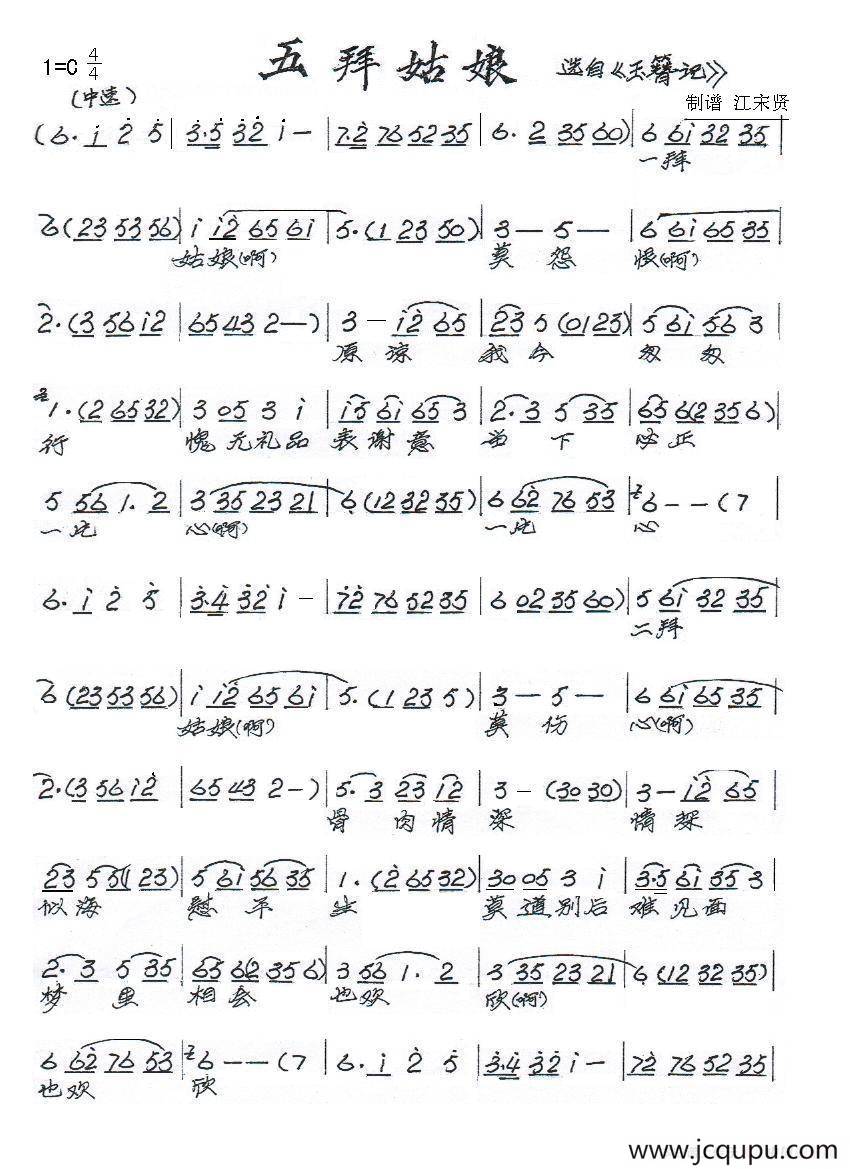 五拜姑娘 选自《玉簪记》
1=C 4/4
(中速)
制谱 江宋贤
(6. i 2 5 | 3.5 32 i — | 7.2 76 52 35 | 6. 2 35 60) | 6 6i 32 35 |
一拜
6 (23 53 56) | i i2 65 6i | 5. (1 23 50) | 3 — 5 — | 6 6i 65 35 |
姑娘(啊) 莫 怨 恨(啊)
2. (3 56 i2 | 65 43 2 —) | 3 — i2 65 | 23 5 (01 23) | 5 6i 56 3 |
原 谅 我今 匆 匆
1. (2 65 32) | 3 05 3 i | i5 6i 65 3 | 2. 3 5 35 | 65 6(2 35 6) |
行 愧无礼品 表谢意 当 下 必正
5 56 1. 2 | 3 35 23 21 | 6 (12 32 35) | 6 62 76 53 | 6 — — (7
一片 心(啊) 一片 心
6. i 2 5 | 3.4 32 i — | 72 76 52 35 | 6 02 35 60) | 5 6i 32 35 |
二拜
6 (23 53 56) | i i2 65 6i | 5. (1 23 5) | 3 — 5 — | 6 6i 65 35 |
姑娘(啊) 莫 伤 心(啊)
2. (3 56 i2 | 65 43 2 —) | 5. 3 23 i2 | 3 — (30 30) | 3 — i2 65 |
骨 肉情 深 情 深
23 5 5(1 23) | 5 6i 56 35 | 1. (2 65 32) | 30 05 3 i | 3.5 6i 35 3 |
似海 慰 平 生 莫道别后 难见面
2. 3 5 35 | 65 6(2 35 6) | 3 56 1. 2 | 3 35 23 21 | 6 (12 32 35) |
梦 里 相会 也欢 欣(啊)
6 62 76 53 | 6 — — (7 | 6. i 2 5 | 3.4 32 i — | 72 76 52 35 |
也欢 欣
www.jcqupu.com